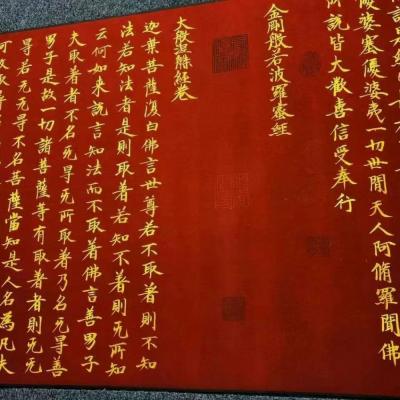 優婆塞優婆夷一切世間天人阿脩羅聞佛
所說皆大歡喜信受奉行
金剛般若波羅蜜經
大般涅槃經卷
迦葉菩薩復白佛言世尊若不取著則不知
法若知法者是則取著若知不著則无所知
云何如來說言知法而不取著佛言善男子
夫取著者不名无㝵无所取著乃名无㝵善
男子是故一切諸菩薩等有取著者則无无
㝵若无无㝵不名菩薩當知是人名為凡夫